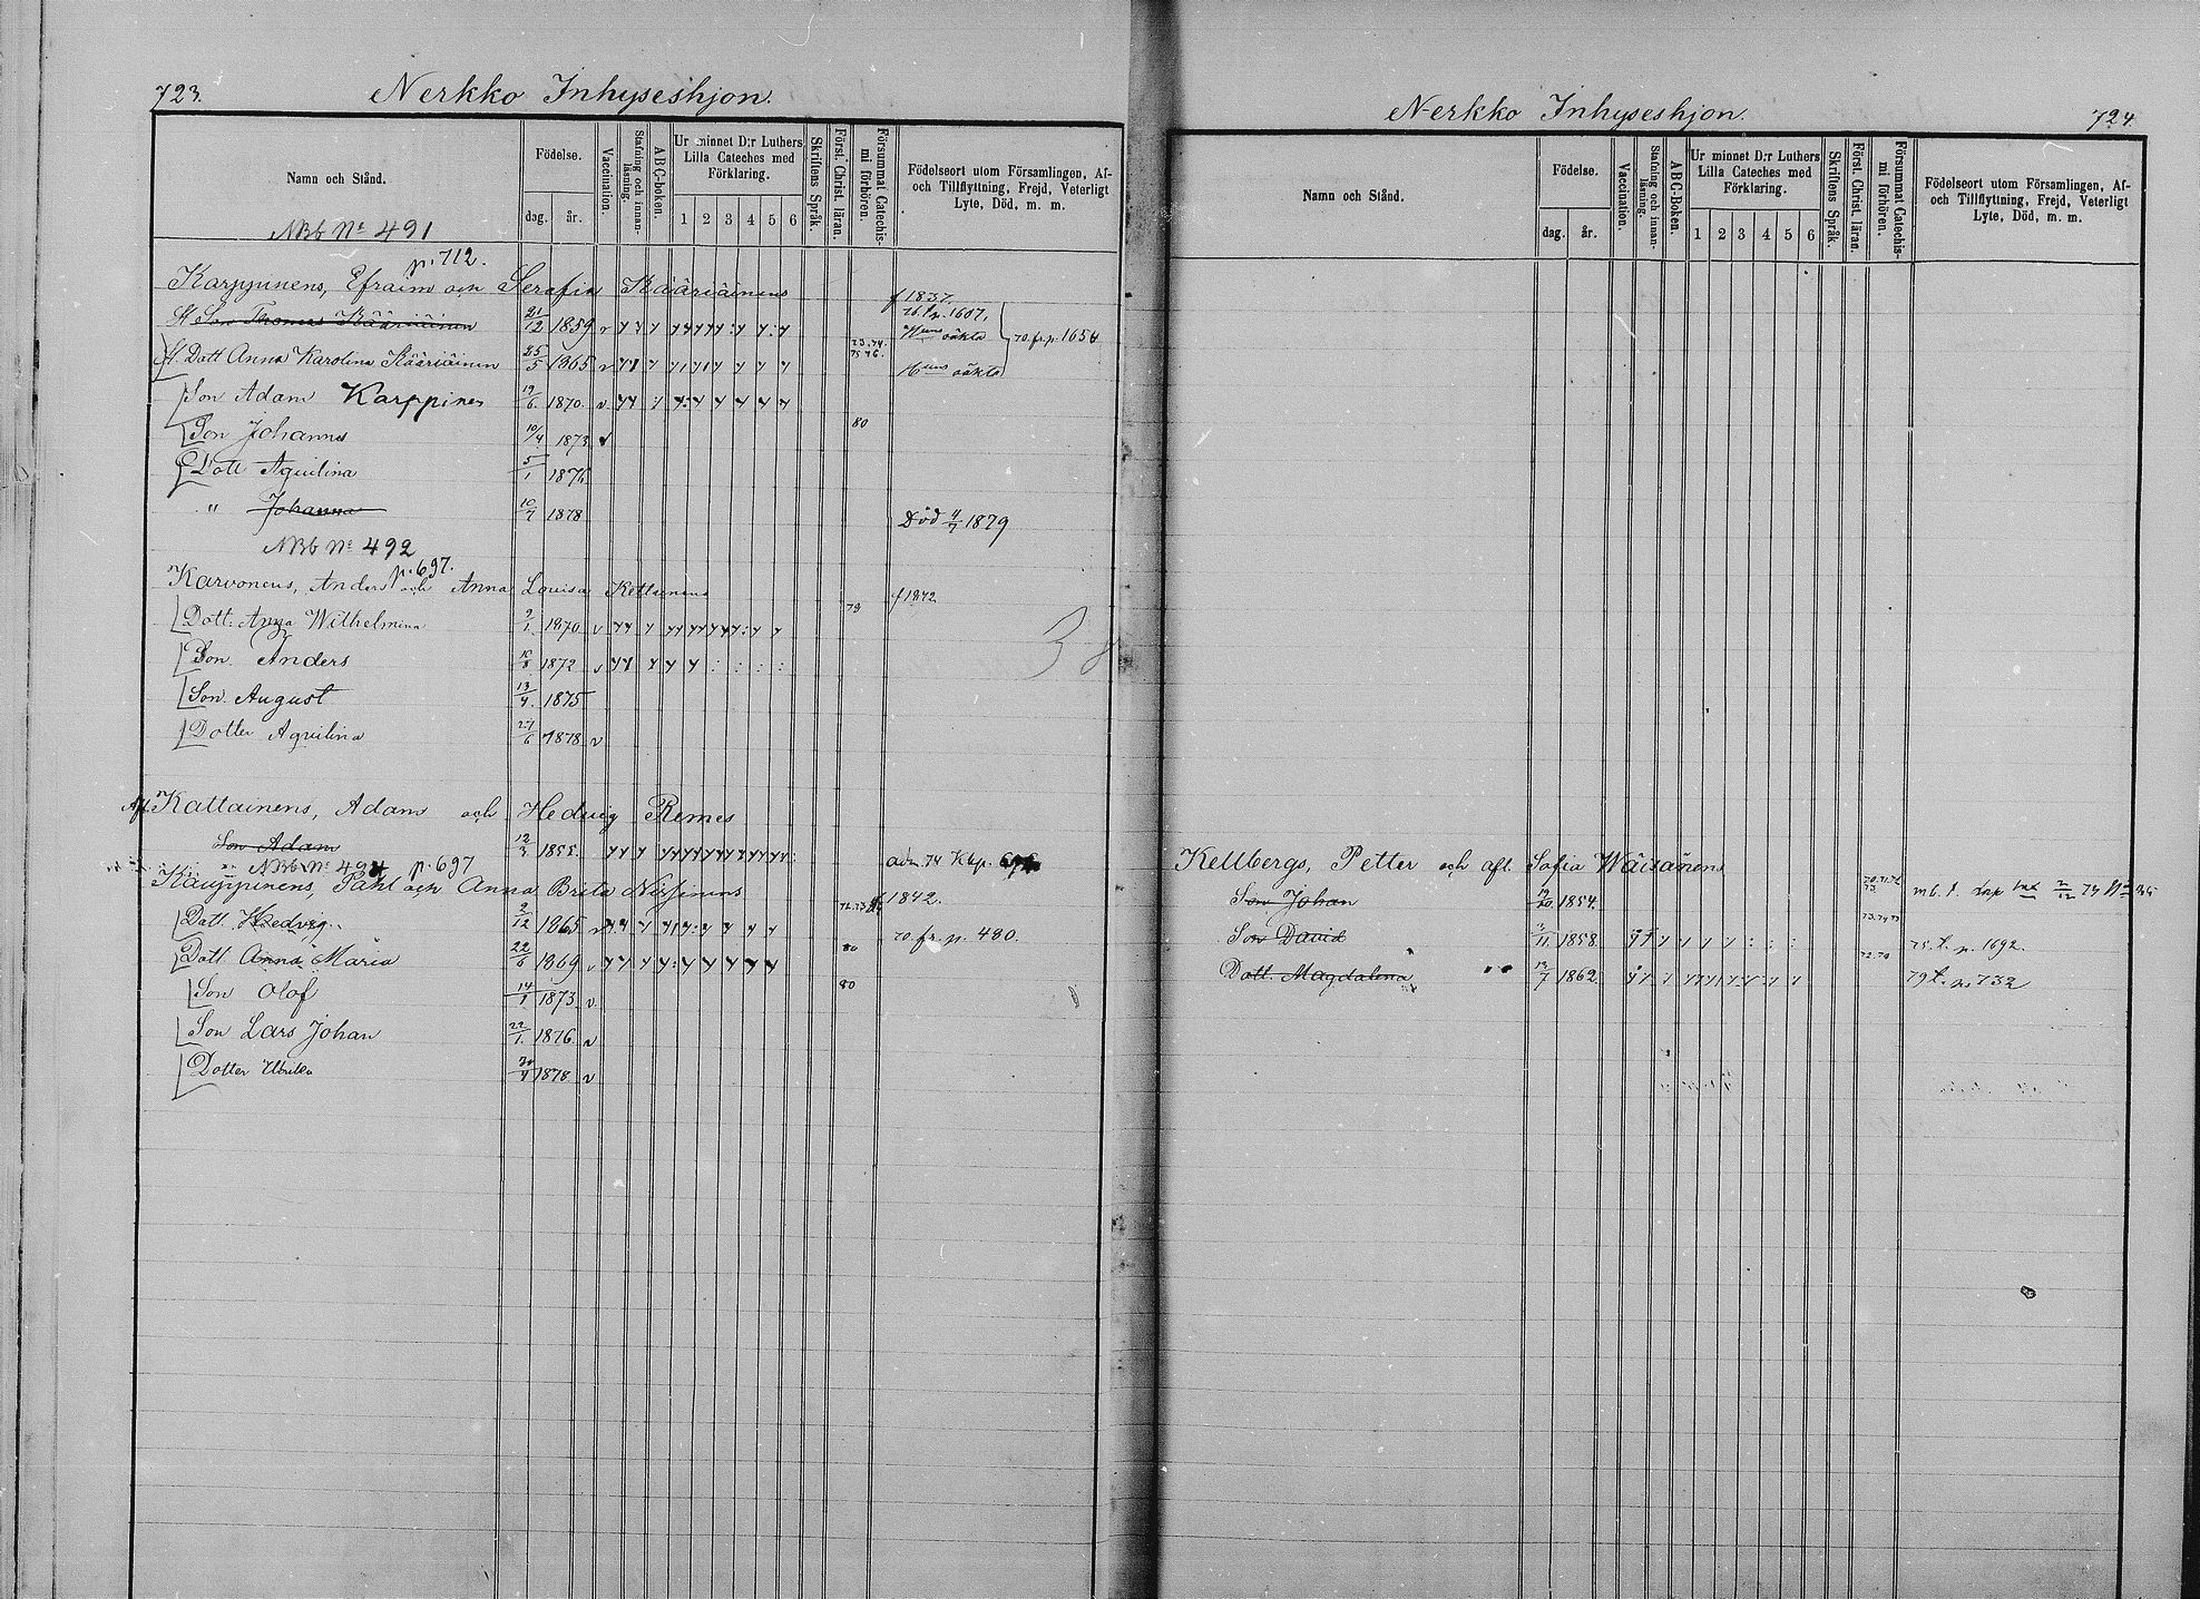 723.
Nerkko Inhyseshjon.
Namn och Stånd.
Födelse.
dag. år.
Vaccination.
Stafning och innanläsning.
ABC-boken.
Ur minnet D:r Luthers Lilla Cateches med Förklaring.
1 2 3 4 5 6
Skriftens Språk.
Först. Christ. läran.
Försummat Catechismi förhören.
Födelseort utom Församlingen, Af- och Tillflyttning, Frejd, Veterligt Lyte, Död, m. m.
NBb No 491
p. 712.
Karppinens, Efraim och Serafia Kääriäinens f 1837.
Son Thomas Kääriäinen 21/12 1859 76 t. p. 1607. oäkta
Dott Anna Karolina Kääriäinen 25/5 1865 73.74. 75 76. oäkta 70. fr. p. 1654
Son Adam Karppinen 19/6. 1870.
Son Johannes 10/4 1873 80
Dott Aquilina 5/1 1876
" Johanna 10/7 1878 Död 4/7 1879
NBb No 492
p. 697.
Karvonens, Anders och Anna Lovisa Kettunens f 1842
Dott. Anna Wilhelmina 9/1. 1870 79
Son. Anders 10/8 1872
Son. August 13/4. 1875
Dotter Aquilina 27/6 1878
Afl. Kattainens, Adam och Hedvig Remes
Son Adam 12/3 1855. adm. 74 Kbp.
NBb No 494 p. 697
Kauppinens, Påhl och Anna Brita Nissinens f 1842.
Dott. Hedvig 2/12 1865 70. fr. p. 480.
Dott Anna Maria 22/6 1869 80
Son Olof 14/1 1873 80
Son Lars Johan 22/1. 1876
Dotter Ulrika 30/4 1878
Nerkko Inhyseshjon.
724.
Namn och Stånd.
Födelse.
dag. år.
Vaccination.
Stafning och innanläsning.
ABC-Boken.
Ur minnet D:r Luthers Lilla Cateches med Förklaring.
1 2 3 4 5 6
Skriftens Språk.
Först. Christ. läran.
Försummat Catechismi förhören.
Födelseort utom Församlingen, Af- och Tillflyttning, Frejd, Veterligt Lyte, Död, m. m.
Kellbergs, Petter och afl. Sofia Wäisänens
Son Johan 1854. 70.71.72 73.
Son David 1858. 75. t. p. 1692.
Dott. Magdalena 1862. 79 t. p. 732